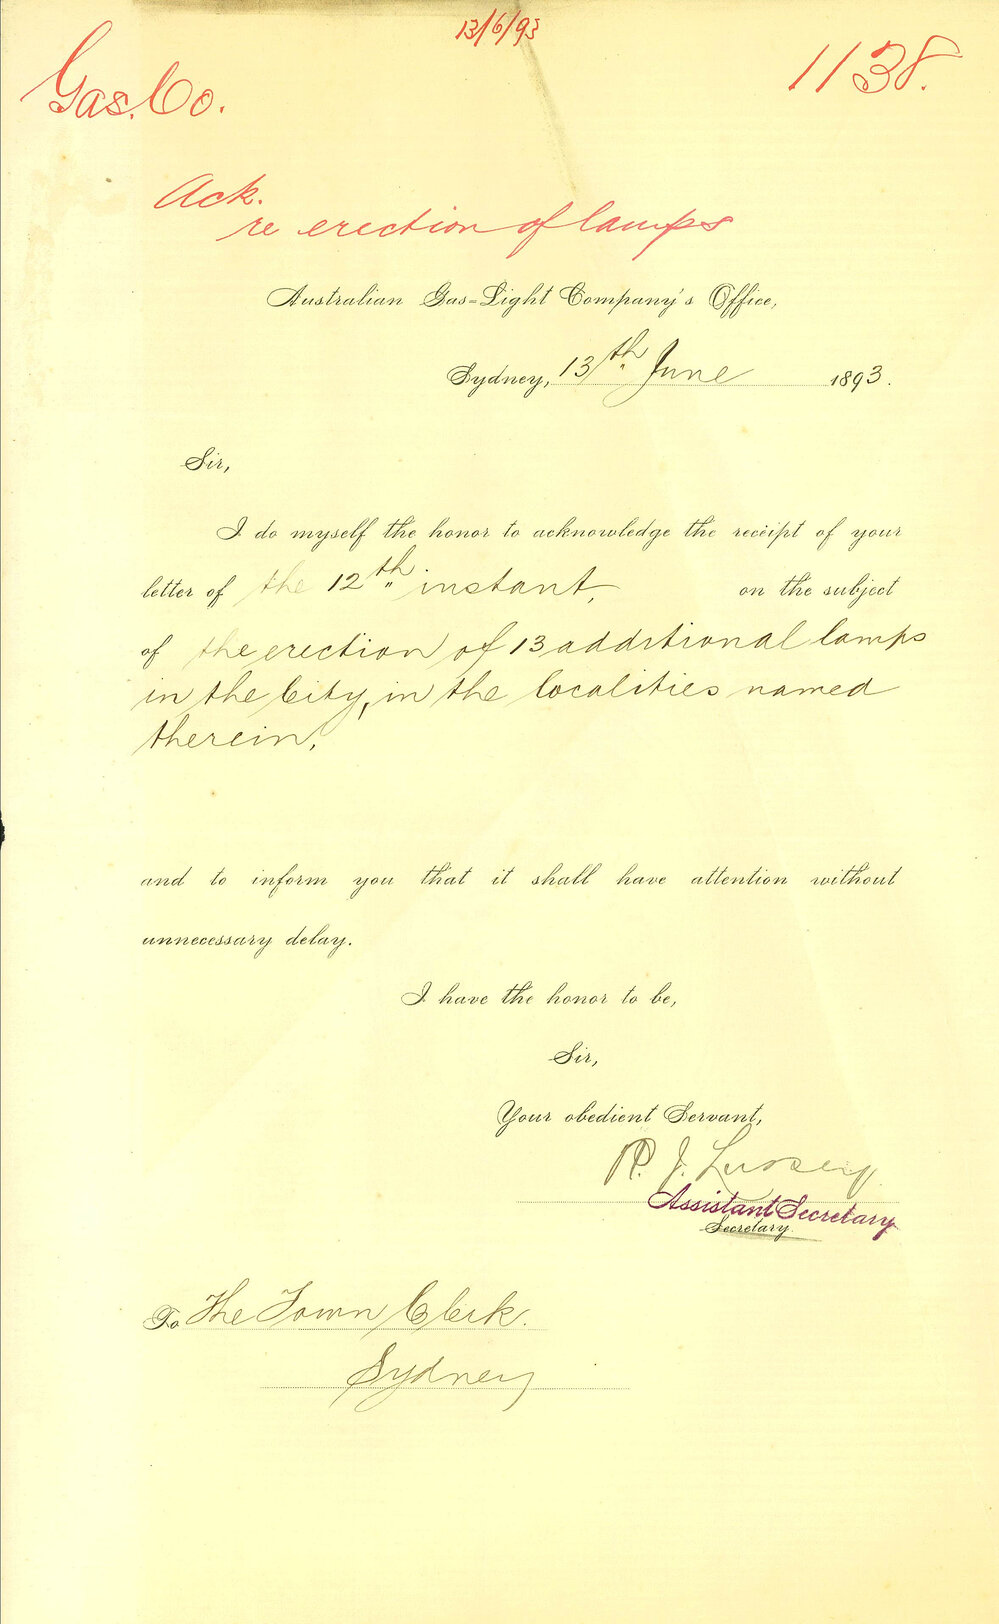 13/6/93
Gas. Co.
1138.
Ack.
re erection of lamps
Australian Gas-Light Company's Office,
Sydney, 13th June 1893.
Sir,
I do myself the honor to acknowledge the receipt of your
letter of the 12th instant, on the subject
of the erection of 13 additional lamps
in the City, in the localities named
therein,
and to inform you that it shall have attention without
unnecessary delay.
I have the honor to be,
Sir,
Your obedient Servant,
R. J. Lussey
Assistant Secretary
Secretary.
To The Town Clerk.
Sydney